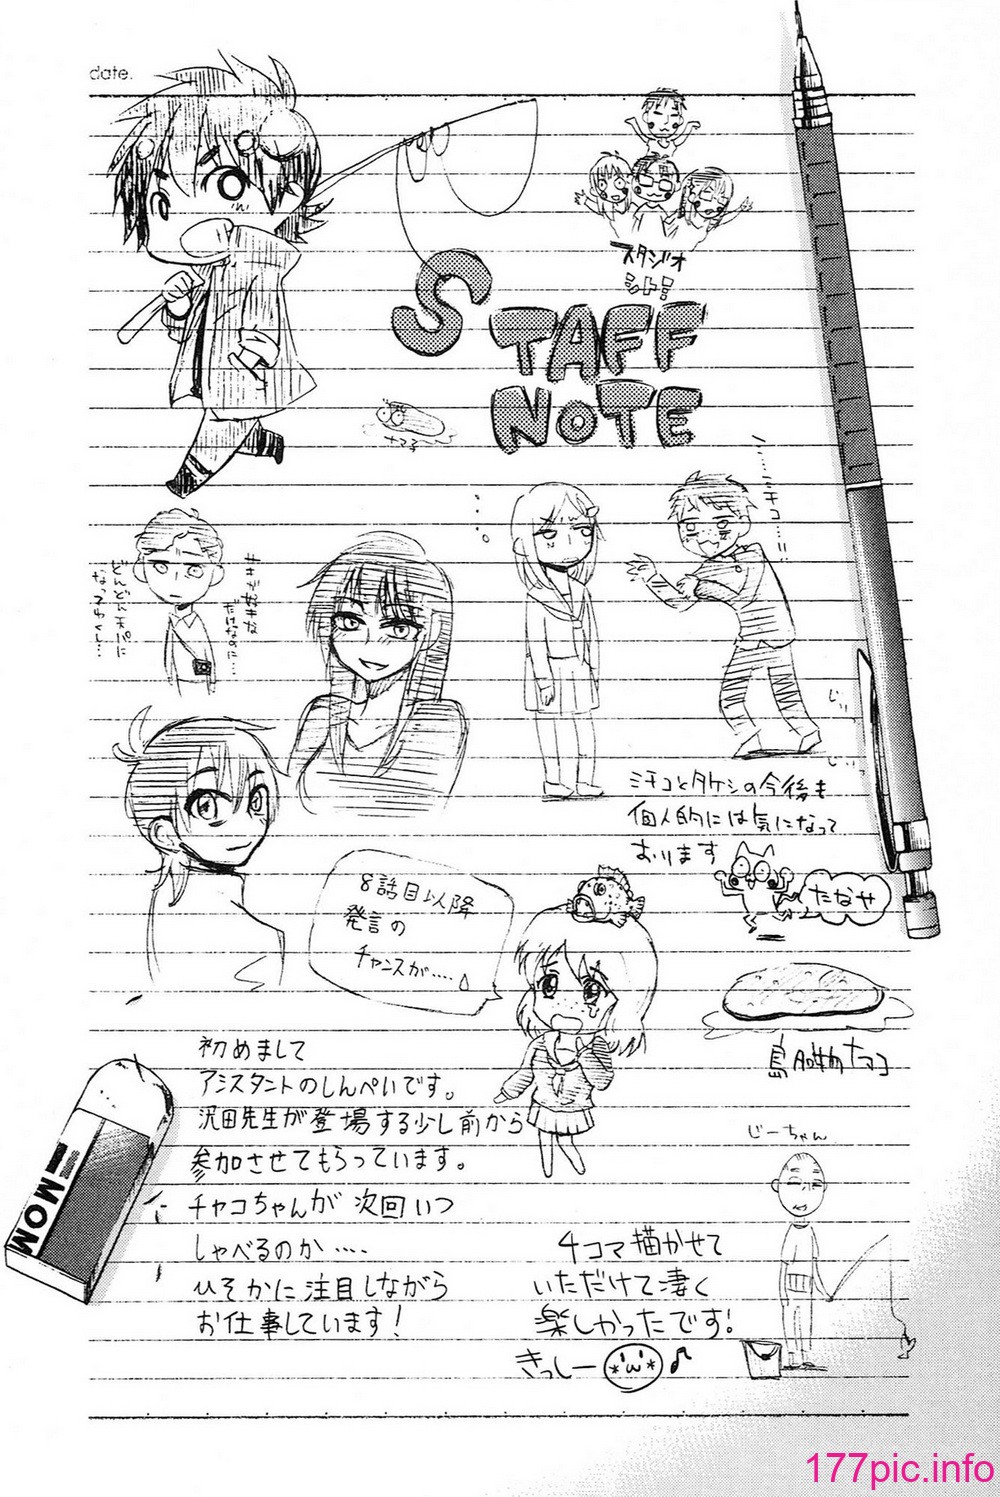 date.
スタジオ
シト渭
STAFF
NOTE
ナマコ
ミチコ…!!
キャップがキな
だけなのに…
どんどん天パに
なってゆく…
じぃぃ
じぃぃっ
ミチコとタケシの今後も
個人的には気になって
おります
たなや
8話目以降
発言の
チャンスが….
島の産物ナマコ
初めまして
アシスタントのしんぺいです。
沢田先生が登場する少し前から
参加させてもらっています。
チャコちゃんが次回いつ
しゃべるのか….
ひそかに注目しながら
お仕事しています!
じーちゃん
4コマ描かせて
いただけて凄く
楽しかったです!
きっしー
MOM
177pic.info